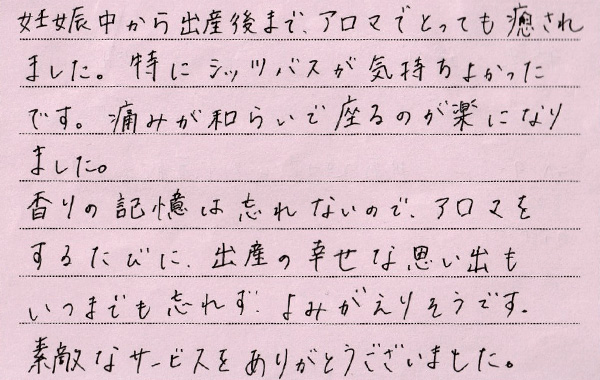 妊娠中から出産後まで、アロマでとっても癒され
ました。特にシッツバスが気持ちよかった
です。痛みが和らいで座るのが楽になり
ました。
香りの記憶は忘れないので、アロマを
するたびに、出産の幸せな思い出も
いつまでも忘れず、よみがえりそうです。
素敵なサービスをありがとうございました。